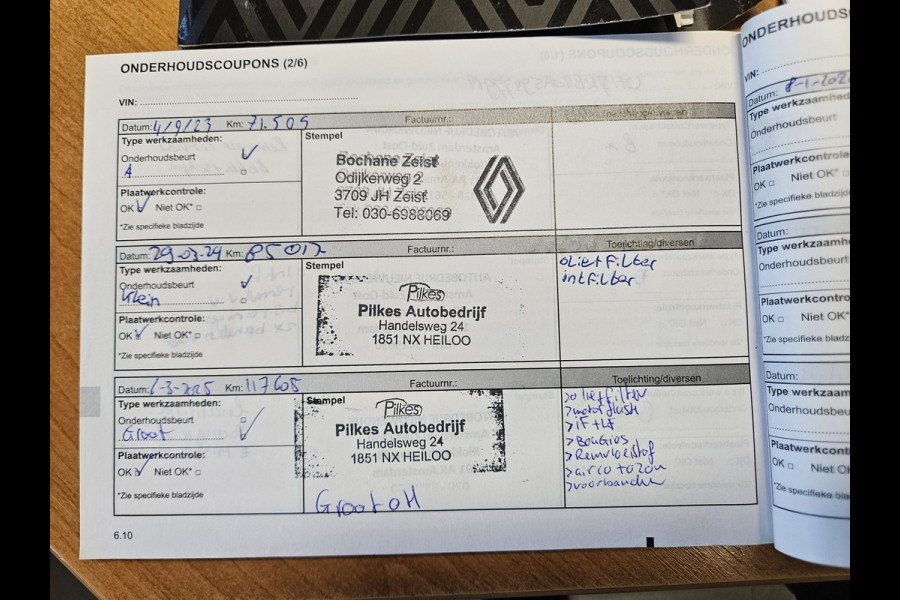 ONDERHOUDSCOUPONS (2/6)
VIN:
Datum: 4/9/23 Km: 71.509
Factuurnr.:
Toelichting/diversen
Type werkzaamheden:
Onderhoudsbeurt
A
Plaatwerkcontrole:
OK Niet OK*
*Zie specifieke bladzijde
Stempel
Bochane Zeist
Odijkerweg 2
3709 JH Zeist
Tel: 030-6988069
Datum: 29-03-24 Km: 85012
Factuurnr.:
Toelichting/diversen
Type werkzaamheden:
Onderhoudsbeurt
Klein
Plaatwerkcontrole:
OK Niet OK*
*Zie specifieke bladzijde
Stempel
Pilkes
Pilkes Autobedrijf
Handelsweg 24
1851 NX HEILOO
oliefilter
intfilter
Datum: 6-3-2025 Km: 117605
Factuurnr.:
Toelichting/diversen
Type werkzaamheden:
Onderhoudsbeurt
Groot
Plaatwerkcontrole:
OK Niet OK*
*Zie specifieke bladzijde
Stempel
Pilkes
Pilkes Autobedrijf
Handelsweg 24
1851 NX HEILOO
Groot OH
>oliefilter
>motorflush
>iF+LF
>Bougies
>Remvloeistof
>airco +ozon
>voorbanden
6.10
ONDERHOUDS
VIN:
Datum: 8-1-202
Type werkzaamhed
Onderhoudsbeurt
Plaatwerkcontrole
OK Niet OK*
*Zie specifieke bladzij
Datum:
Type werkzaamh
Onderhoudsbeurt
Plaatwerkcontro
OK Niet OK*
*Zie specifieke bladz
Datum:
Type werkzaam
Onderhoudsbeu
Plaatwerkcontr
OK Niet O
*Zie specifieke bla